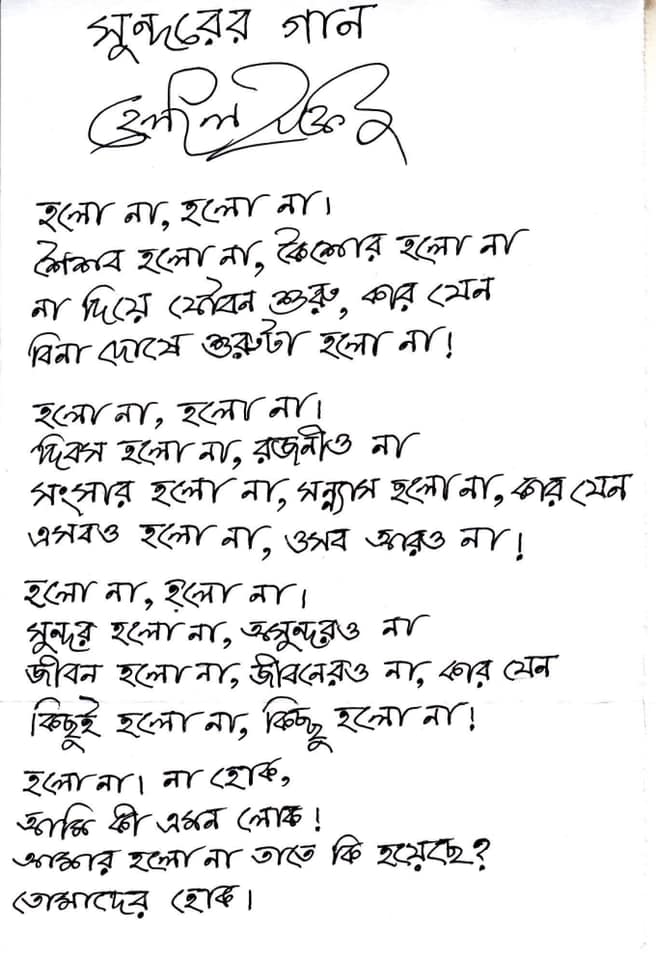 সুন্দরের গান
হেলাল হাফিজ
হলো না, হলো না।
শৈশব হলো না, কৈশোর হলো না
না দিয়ে যৌবন শুরু, কার যেন
বিনা দোষে শুরুটা হলো না!
হলো না, হলো না।
দিবস হলো না, রজনীও না
সংসার হলো না, সন্ন্যাস হলো না, কার যেন
এসবও হলো না, ওসব আরও না!
হলো না, হলো না।
সুন্দর হলো না, অসুন্দরও না
জীবন হলো না, জীবনেরও না, কার যেন
কিছুই হলো না, কিচ্ছু হলো না!
হলো না। না হোক,
আমি কী এমন লোক!
আমার হলো না তাতে কি হয়েছে?
তোমাদের হোক।